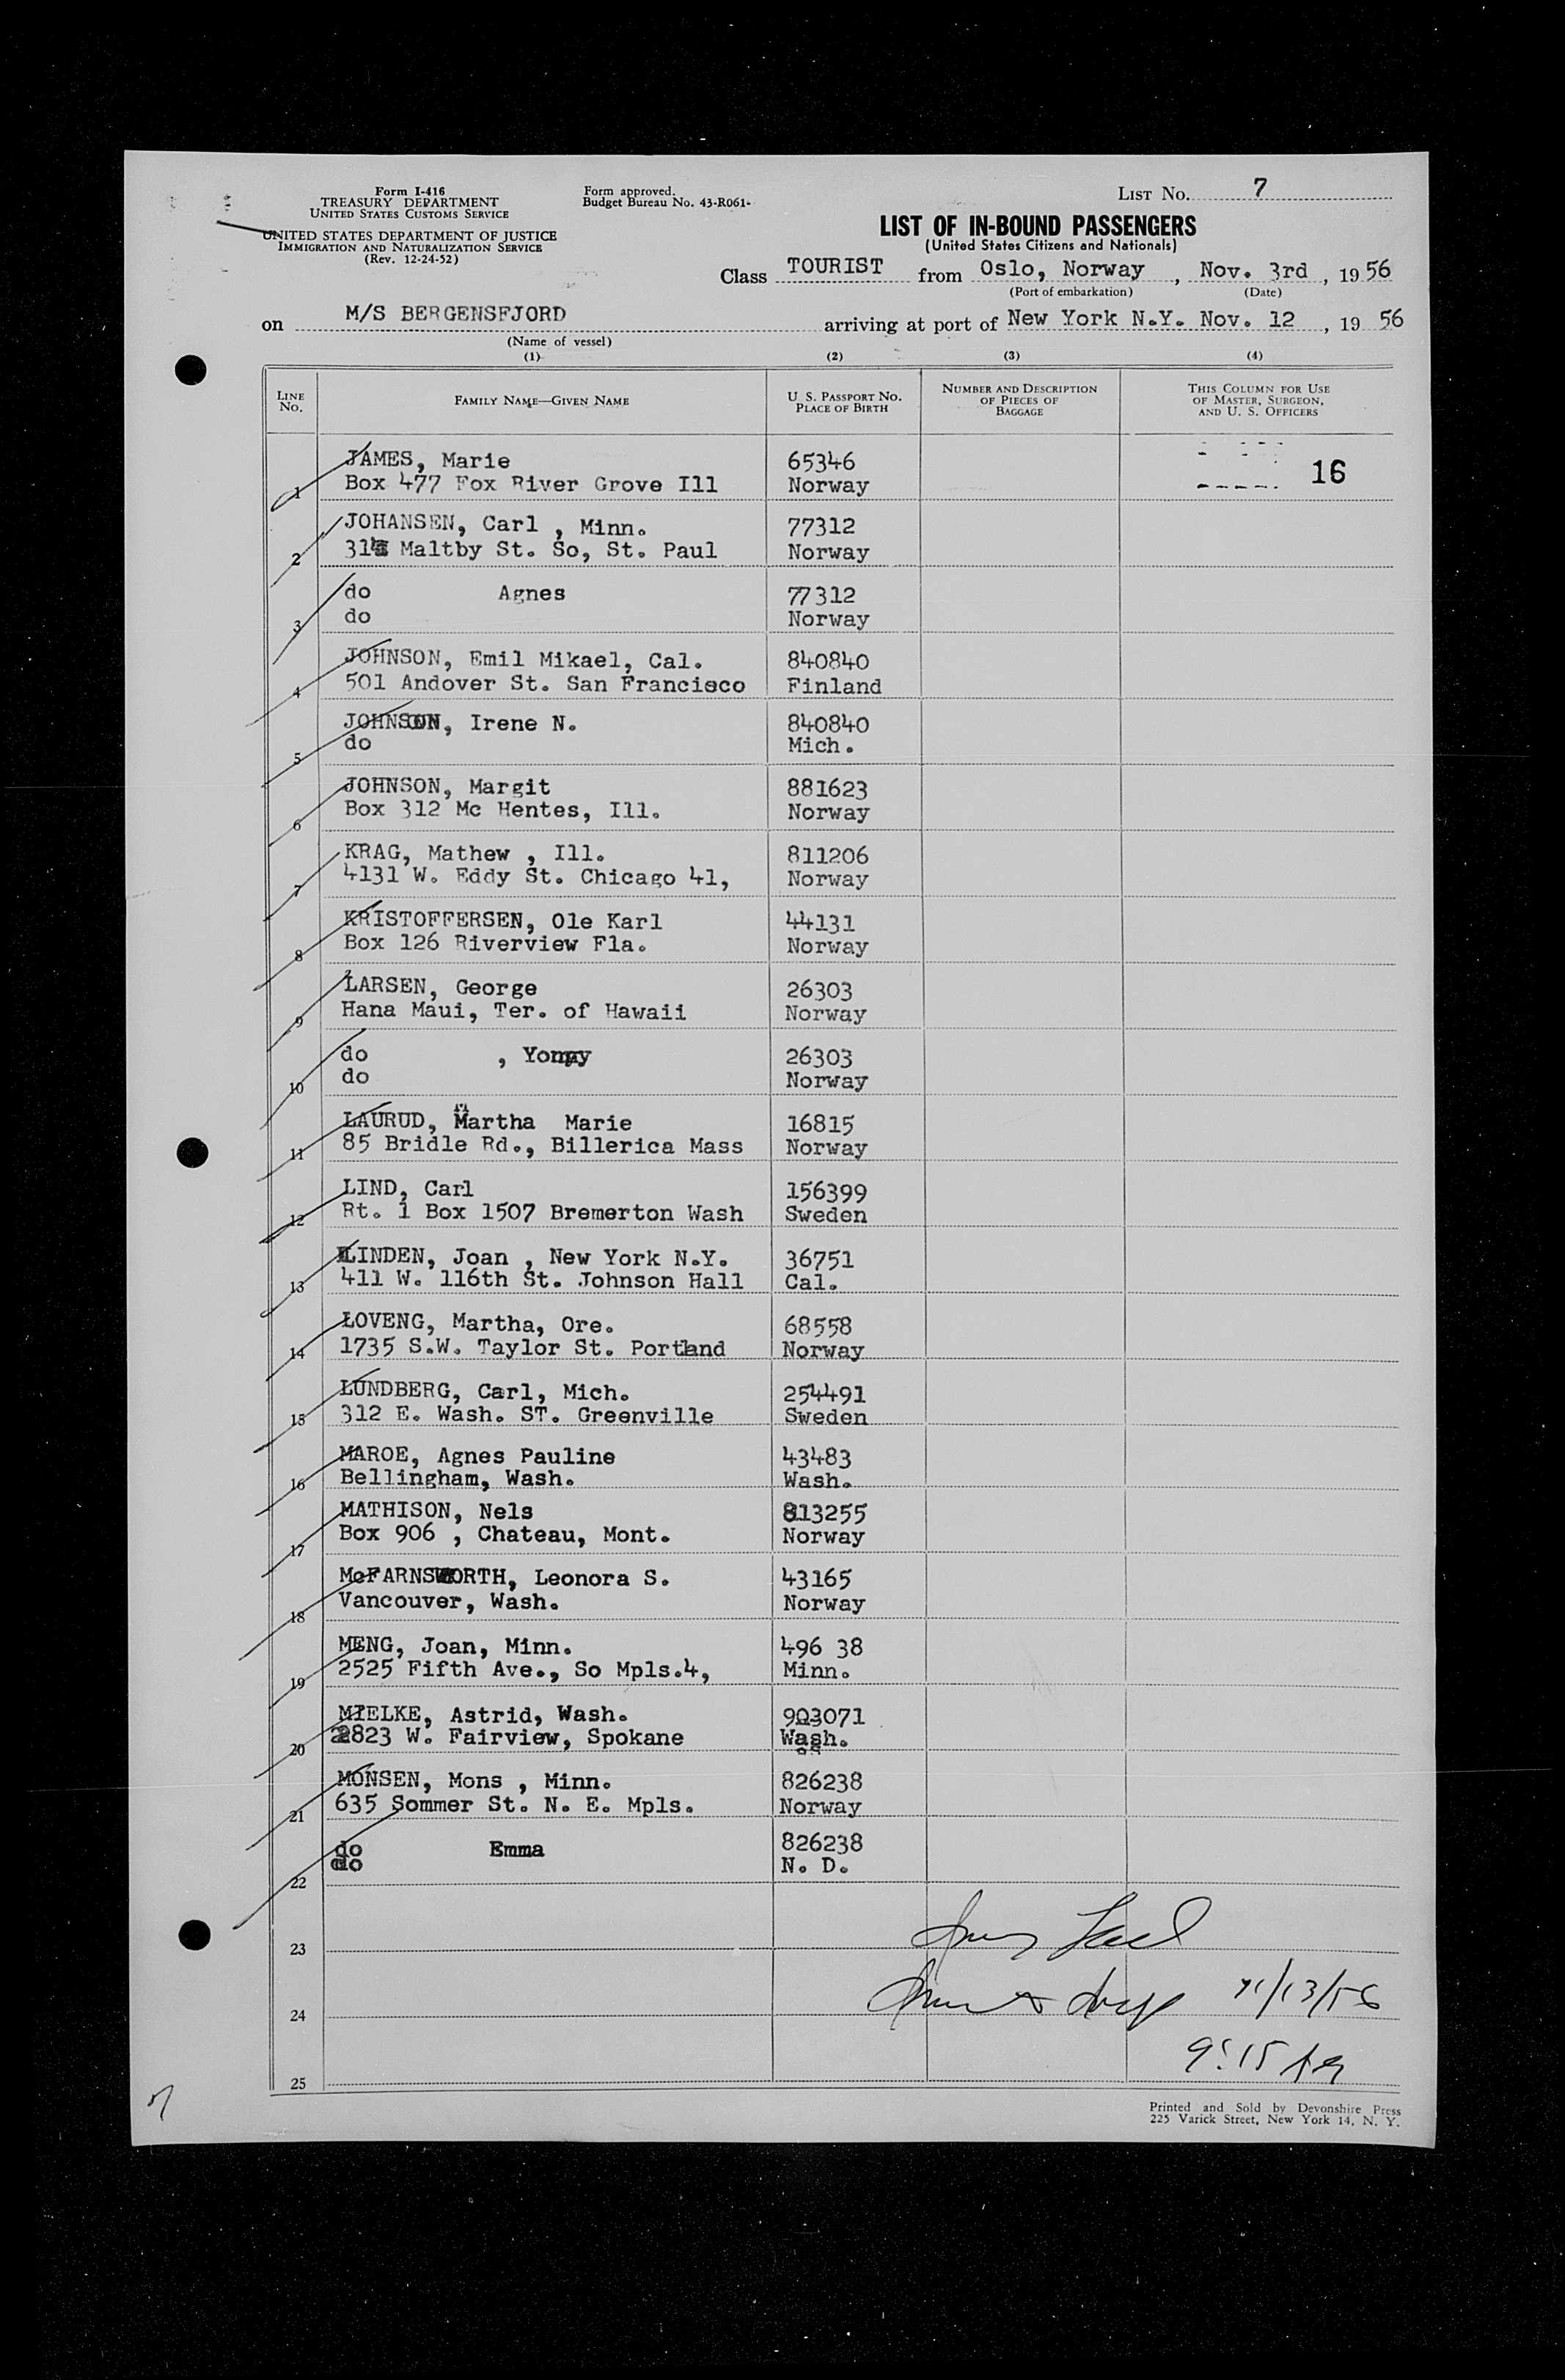 Form I-416
TREASURY DEPARTMENT
UNITED STATES CUSTOMS SERVICE
UNITED STATES DEPARTMENT OF JUSTICE
IMMIGRATION AND NATURALIZATION SERVICE
(Rev. 12-24-52)
Form approved.
Budget Bureau No. 43-R061-
LIST NO. 7
LIST OF IN-BOUND PASSENGERS
(United States Citizens and Nationals)
Class TOURIST from Oslo, Norway, Nov. 3rd, 1956
(Port of embarkation) (Date)
on M/S BERGENSFJORD arriving at port of New York N.Y. Nov. 12, 19 56
(Name of vessel)
(1) (2) (3) (4)
LINE NO. FAMILY NAME—GIVEN NAME U. S. PASSPORT NO. PLACE OF BIRTH NUMBER AND DESCRIPTION OF PIECES OF BAGGAGE THIS COLUMN FOR USE OF MASTER, SURGEON, AND U. S. OFFICERS
JAMES, Marie 65346 16
1 Box 477 Fox River Grove Ill Norway
JOHANSEN, Carl , Minn. 77312
2 Maltby St. So, St. Paul Norway
do Agnes 77312
3 do Norway
JOHNSON, Emil Mikael, Cal. 840840
4 501 Andover St. San Francisco Finland
JOHNSON, Irene N. 840840
5 do Mich.
JOHNSON, Margit 881623
6 Box 312 Mc Hentes, Ill. Norway
KRAG, Mathew , Ill. 811206
7 4131 W. Eddy St. Chicago 41, Norway
KRISTOFFERSEN, Ole Karl 44131
8 Box 126 Riverview Fla. Norway
LARSEN, George 26303
9 Hana Maui, Ter. of Hawaii Norway
do , 26303
10 do Norway
LAURUD, Martha Marie 16815
11 85 Bridle Rd., Billerica Mass Norway
LIND, Carl 156399
12 Rt. 1 Box 1507 Bremerton Wash Sweden
LINDEN, Joan , New York N.Y. 36751
13 411 W. 116th St. Johnson Hall Cal.
LOVENG, Martha, Ore. 68558
14 1735 S.W. Taylor St. Portland Norway
LUNDBERG, Carl, Mich. 254491
15 312 E. Wash. ST. Greenville Sweden
MAROE, Agnes Pauline 43483
16 Bellingham, Wash. Wash.
MATHISON, Nels 813255
17 Box 906 , Chateau, Mont. Norway
McFARNSWORTH, Leonora S. 43165
18 Vancouver, Wash. Norway
MENG, Joan, Minn. 496 38
19 2525 Fifth Ave., So Mpls.4, Minn.
MIELKE, Astrid, Wash. 903071
20 2823 W. Fairview, Spokane Wash.
MONSEN, Mons , Minn. 826238
21 635 Sommer St. N. E. Mpls. Norway
do Emma 826238
22 do N. D.
23
24 11/13/56
25 9:15
Printed and Sold by Devonshire Press
225 Varick Street, New York 14, N. Y.